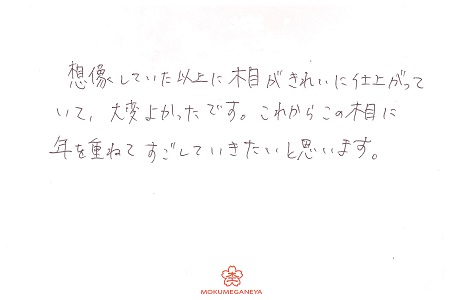 想像していた以上に木目がきれいに仕上がって
いて、大変よかったです。これからこの木目に
年を重ねてすごしていきたいと思います。
MOKUMEGANEYA